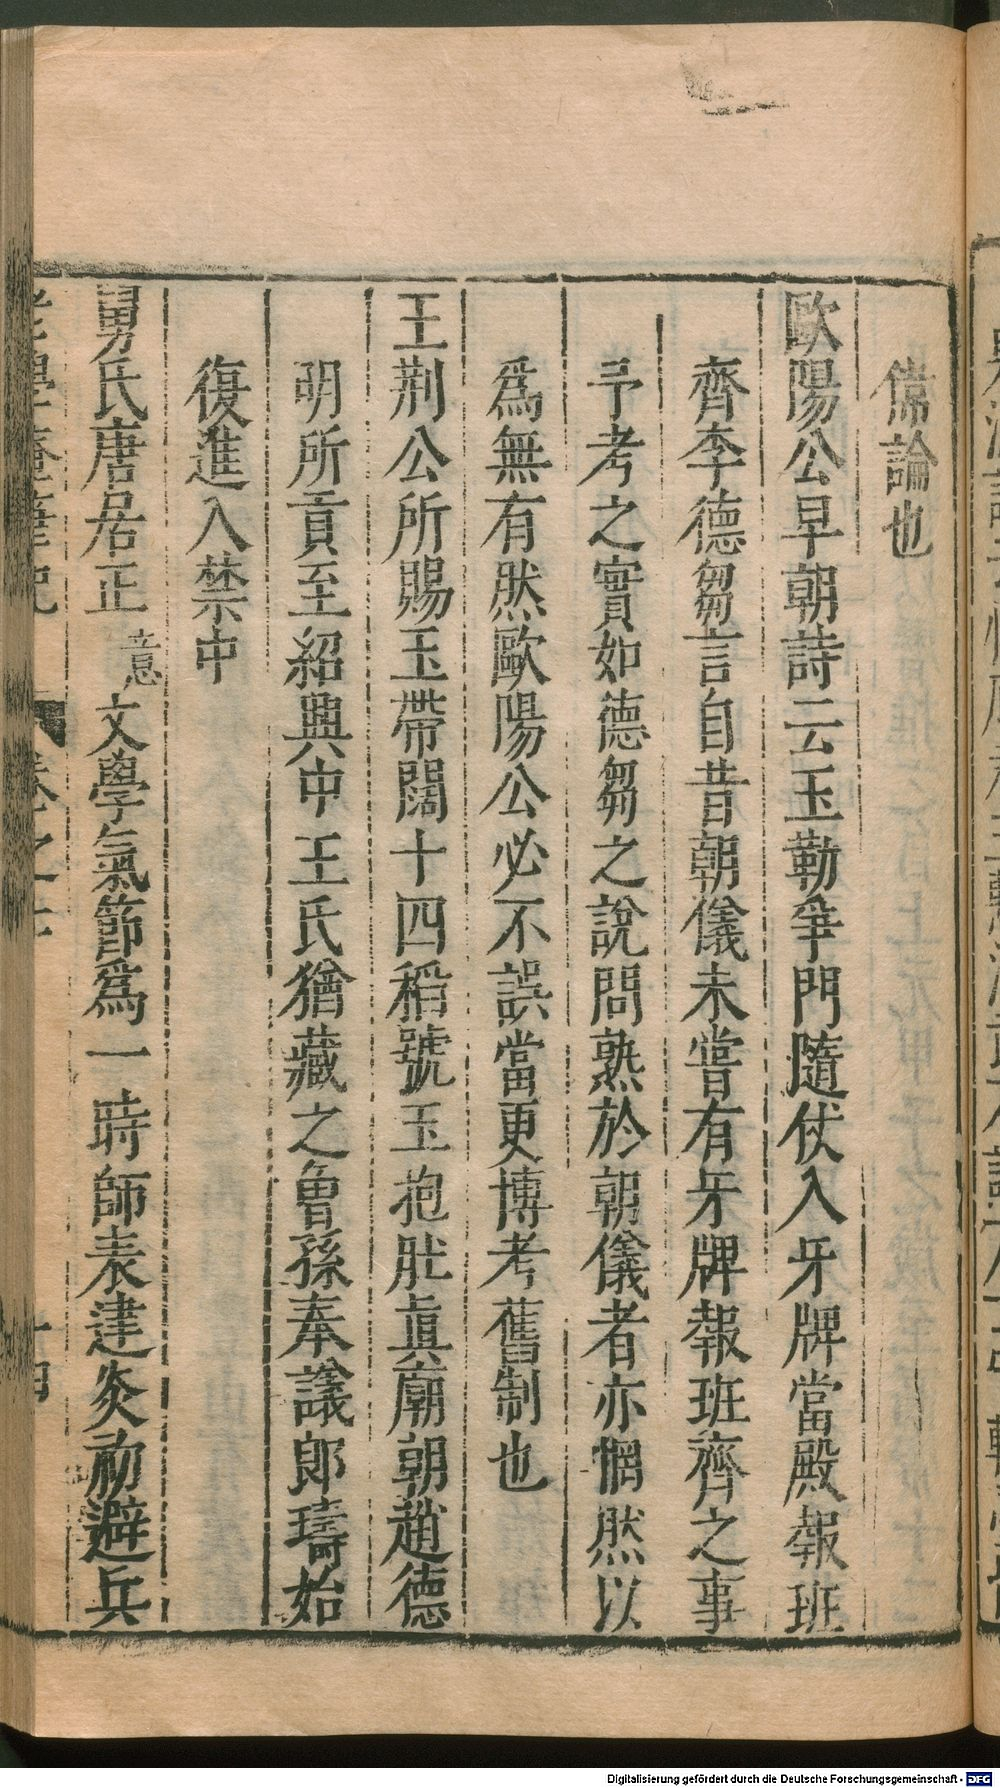 偉論也
歐陽公早朝詩云玉勒爭門隨仗入牙牌當殿報班
齊李德芻言自昔朝儀未嘗有牙牌報班齊之事
予考之實如德芻之說問熟於朝儀者亦惘然以
爲無有然歐陽公必不誤當更博考舊制也
王荆公所賜玉帶闊十四稻號玉抱肚眞廟朝趙德
明所貢至紹興中王氏猶藏之曾孫奉議郎璹始
復進入禁中
舅氏唐居正意文學氣節爲一時師表建炎初避兵
老學庵筆記 卷之七 十四
Digitalisierung gefördert durch die Deutsche Forschungsgemeinschaft - DFG